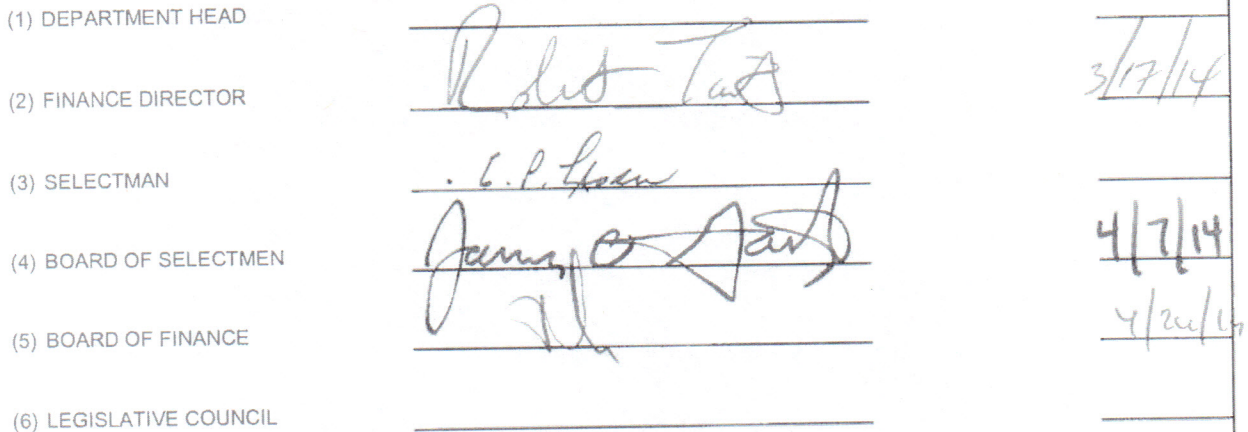 (1) DEPARTMENT HEAD
(2) FINANCE DIRECTOR Robert Tait 3/17/14
(3) SELECTMAN
(4) BOARD OF SELECTMEN 4/7/14
(5) BOARD OF FINANCE
(6) LEGISLATIVE COUNCIL